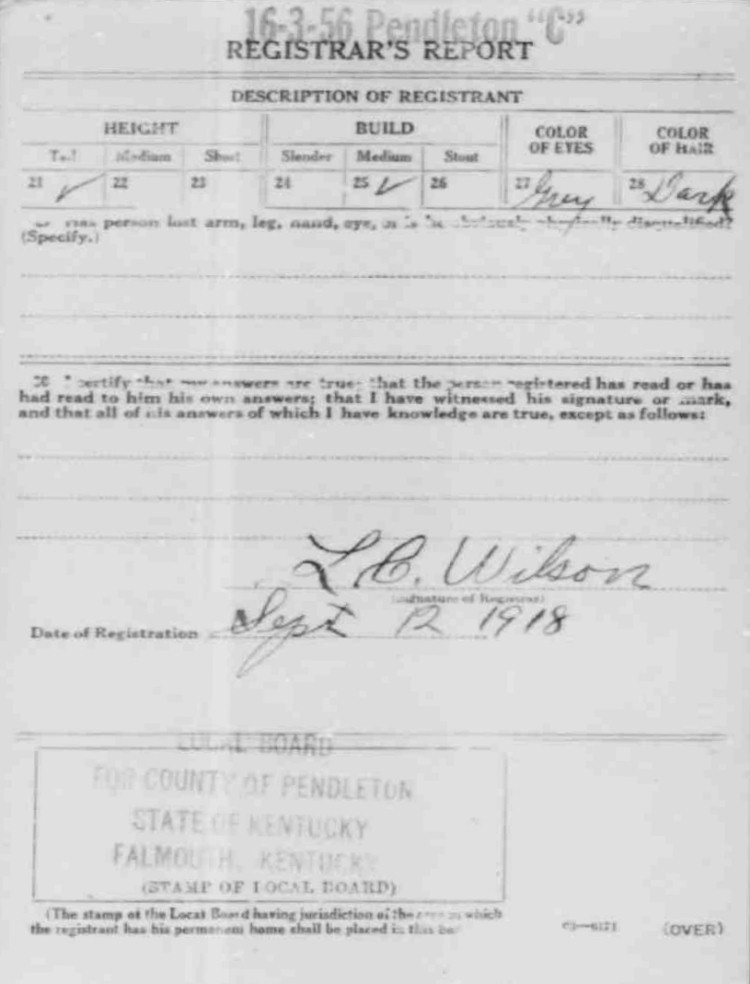 16-3-56 Pendleton "C"
REGISTRAR'S REPORT
DESCRIPTION OF REGISTRANT
HEIGHT BUILD COLOR OF EYES COLOR OF HAIR
Tall Medium Short Slender Medium Stout
21 ✓ 22 23 24 25 ✓ 26 27 Grey 28 Dark
person lost arm, leg, hand, eye, or is he obviously physically disqualified?
(Specify.)
30 I certify that my answers are true; that the person registered has read or has
had read to him his own answers; that I have witnessed his signature or mark,
and that all of his answers of which I have knowledge are true, except as follows:
L. C. Wilson
(Signature of Registrar)
Date of Registration Sept 12 1918
LOCAL BOARD
FOR COUNTY OF PENDLETON
STATE OF KENTUCKY
FALMOUTH, KENTUCKY
(STAMP OF LOCAL BOARD)
(The stamp of the Local Board having jurisdiction of the area in which
the registrant has his permanent home shall be placed in this box.)
03—6171 (OVER)